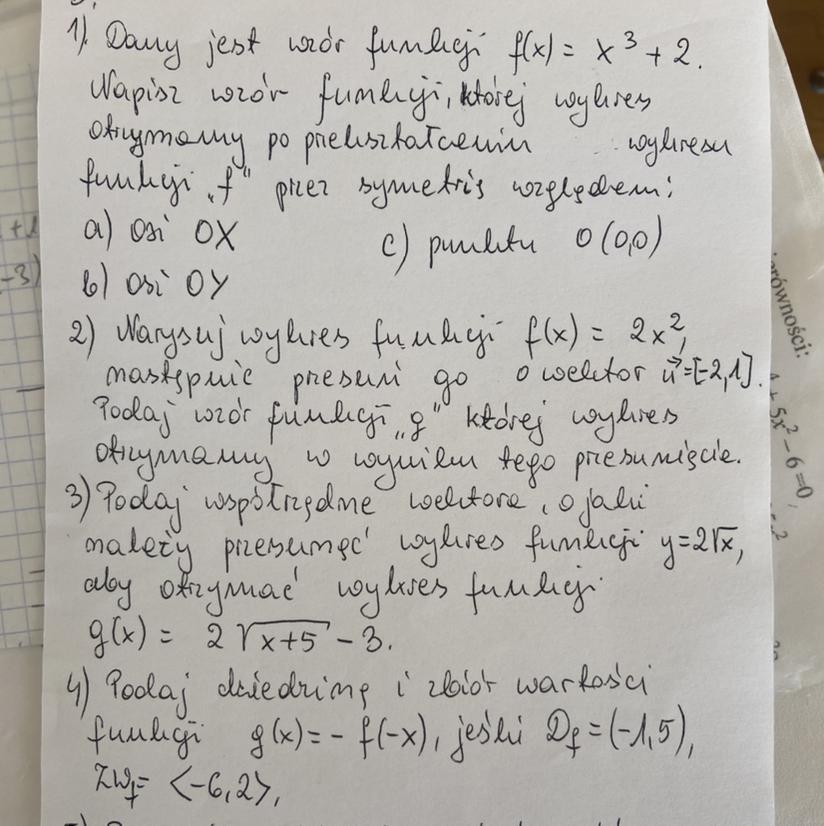 1). Dany jest wzór funkcji f(x) = x³ + 2.
Napisz wzór funkcji, której wykres
otrzymamy po przekształceniu wykresu
funkcji „f" przez symetrię względem:
a) osi OX c) punktu O(0,0)
b) osi OY
2) Narysuj wykres funkcji f(x) = 2x²,
następnie przesuń go o wektor u⃗=[-2,1].
Podaj wzór funkcji „g" której wykres
otrzymamy w wyniku tego przesunięcie.
3) Podaj współrzędne wektora, o jaki
należy przesunąć wykres funkcji y=2√x,
aby otrzymać wykres funkcji
g(x) = 2√(x+5) - 3.
4) Podaj dziedzinę i zbiór wartości
funkcji g(x) = - f(-x), jeśli D_f = (-1,5),
ZW_f = <-6,2>,
+1
-3)
nierówności:
+ 5x² - 6 = 0,